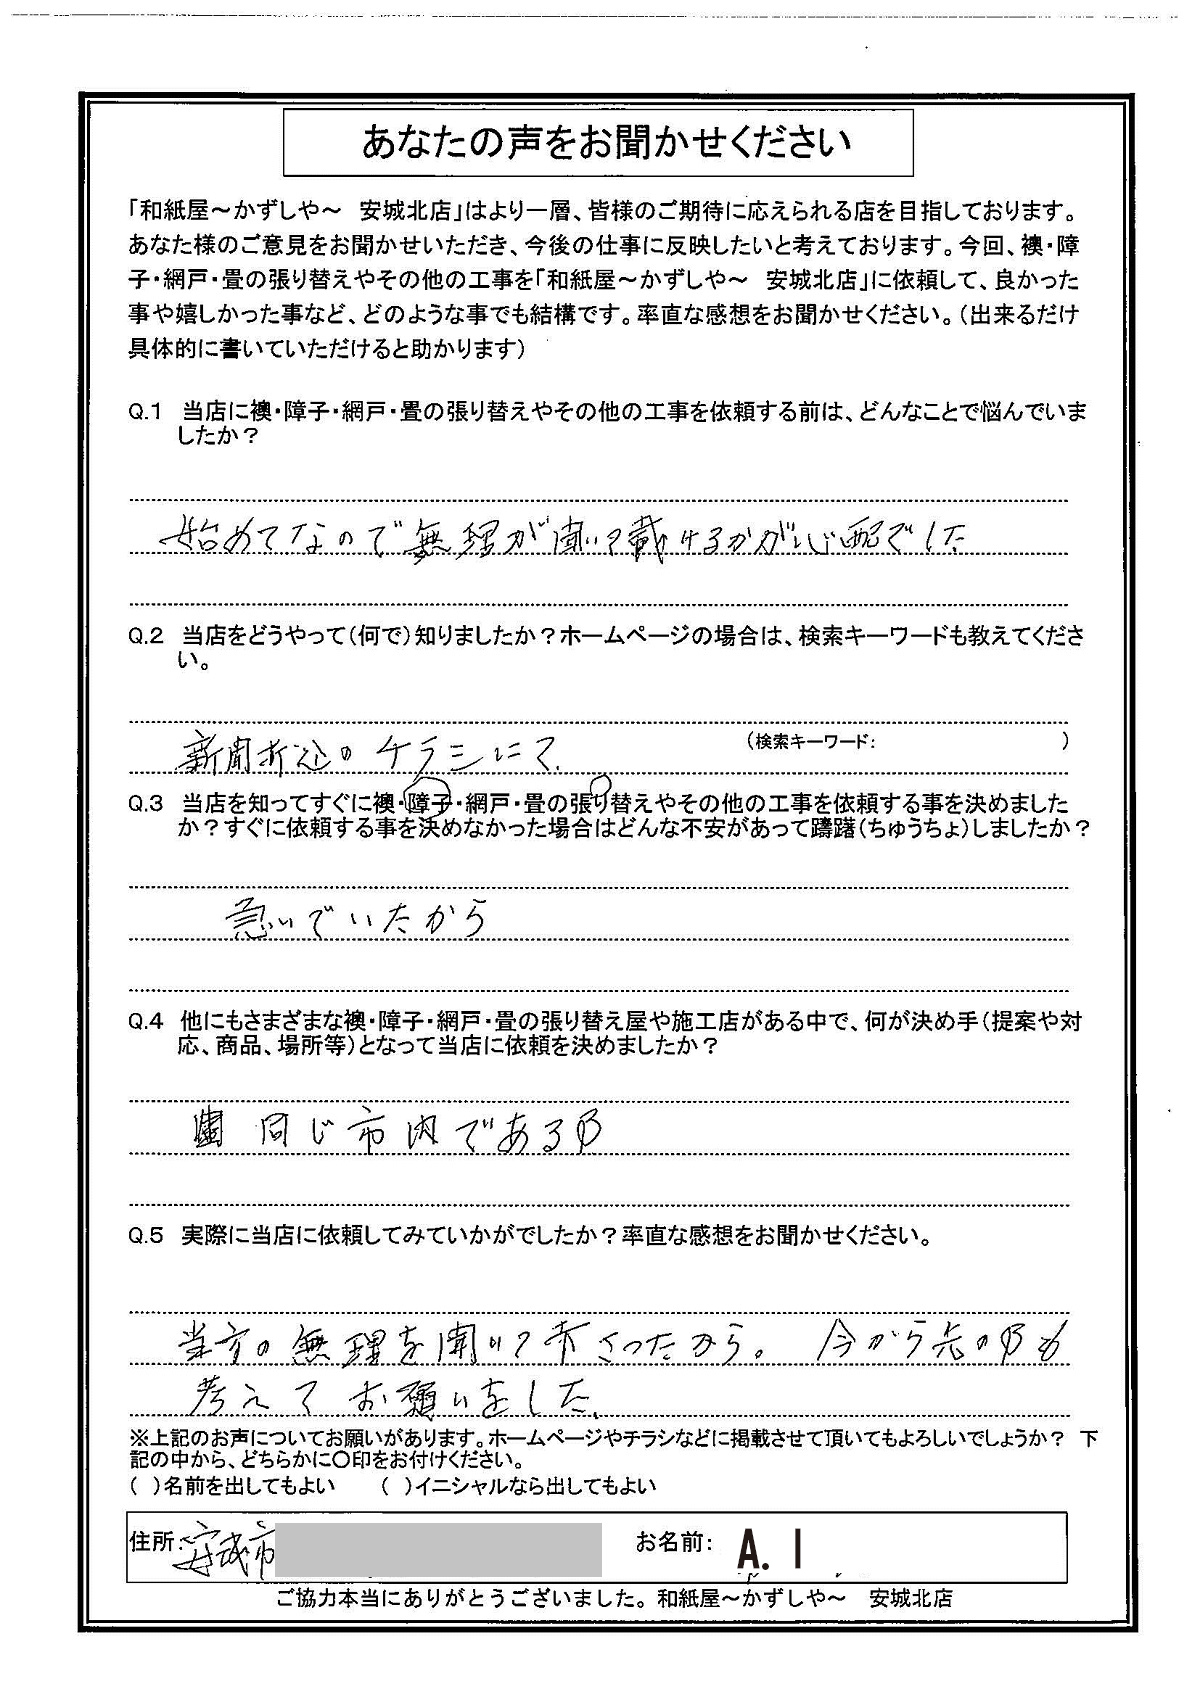 あなたの声をお聞かせください
「和紙屋～かずしや～　安城北店」はより一層、皆様のご期待に応えられる店を目指しております。
あなた様のご意見をお聞かせいただき、今後の仕事に反映したいと考えております。今回、襖・障
子・網戸・畳の張り替えやその他の工事を「和紙屋～かずしや～　安城北店」に依頼して、良かった
事や嬉しかった事など、どのような事でも結構です。率直な感想をお聞かせください。（出来るだけ
具体的に書いていただけると助かります）
Q.1　当店に襖・障子・網戸・畳の張り替えやその他の工事を依頼する前は、どんなことで悩んでいま
したか？
始めてなので無理が聞いて載けるかが心配でした
Q.2　当店をどうやって（何で）知りましたか？ホームページの場合は、検索キーワードも教えてくださ
い。
新聞折込のチラシにて （検索キーワード:　）
Q.3　当店を知ってすぐに襖・障子・網戸・畳の張り替えやその他の工事を依頼する事を決めました
か？すぐに依頼する事を決めなかった場合はどんな不安があって躊躇（ちゅうちょ）しましたか？
急いでいたから
Q.4　他にもさまざまな襖・障子・網戸・畳の張り替え屋や施工店がある中で、何が決め手（提案や対
応、商品、場所等）となって当店に依頼を決めましたか？
同じ市内である
Q.5　実際に当店に依頼してみていかがでしたか？率直な感想をお聞かせください。
当方の無理を聞いて下さったから。 今から先の も
考えてお願いをした
※上記のお声についてお願いがあります。ホームページやチラシなどに掲載させて頂いてもよろしいでしょうか？　下
記の中から、どちらかに〇印をお付けください。
（　）名前を出してもよい　（　）イニシャルなら出してもよい
住所: 安城市 お名前: A. I
ご協力本当にありがとうございました。和紙屋～かずしや～　安城北店